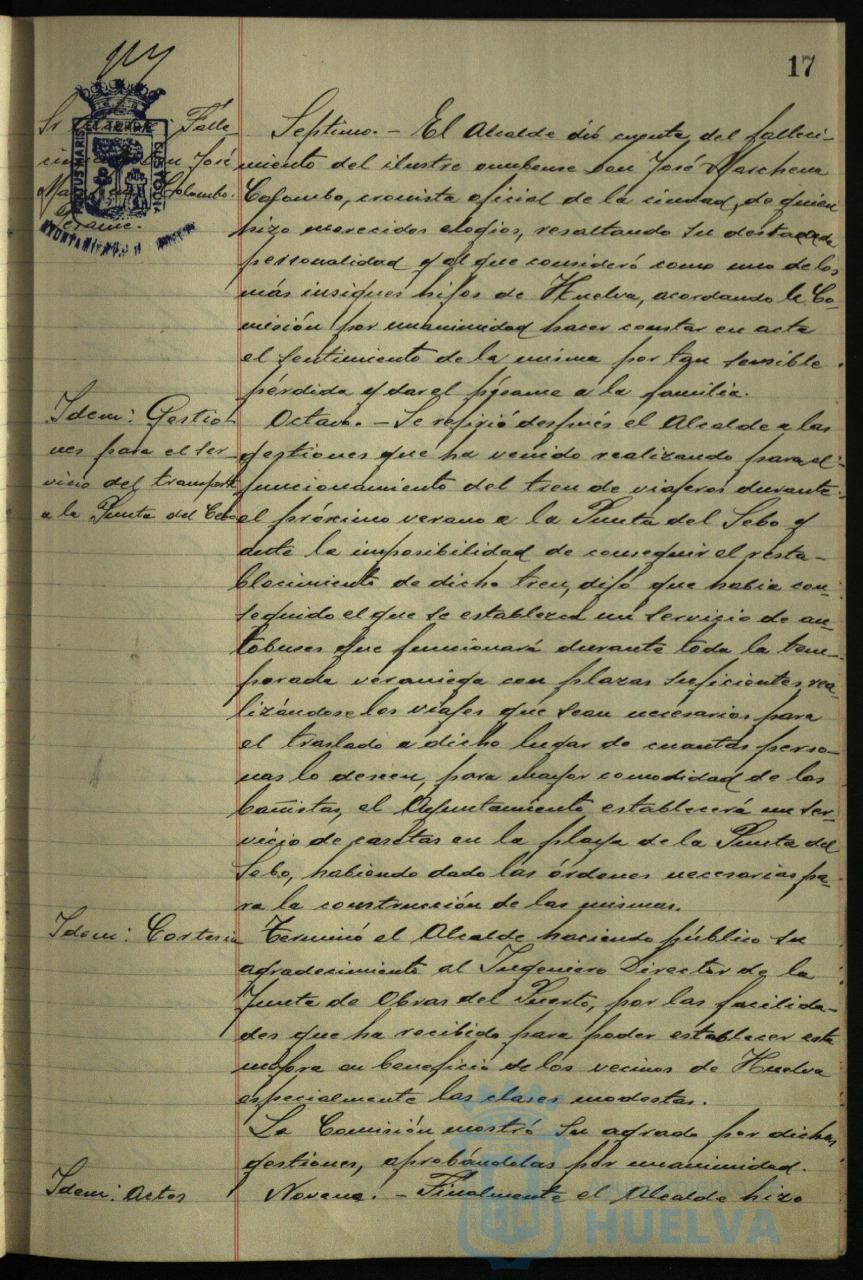 17
Septimo.- El Alcalde dió cuenta del falleci-
miento del ilustre onubense don José Marchena
Colombo, cronista oficial de la ciudad, de quien
hizo merecidos elogios, resaltando su destacada
personalidad y al que consideró como uno de los
más insignes hijos de Huelva, acordando la Co-
misión por unanimidad hacer constar en acta
el sentimiento de la misma por tan sensible
pérdida y dar el pésame a la familia.
Falle
don José
Colombo.
Pésame.
PORTUS MARIS ET TERRAE CUSTODIA
AYUNTAMIENTO
Idem: Gestio-
nes para el ser-
vicio del transporte
a la Punta del Cebo
Octavo.- Se refirió después el Alcalde a las
gestiones que ha venido realizando para el
funcionamiento del tren de viajeros durante
el próximo verano a la Punta del Sebo y
ante la imposibilidad de conseguir el resta-
blecimiento de dicho tren, dijo que habia con-
seguido el que se establezca un servicio de au-
tobuses que funcionará durante toda la tem-
porada veraniega con plazas suficientes, rea-
lizándose los viajes que sean necesarios para
el traslado a dicho lugar de cuantas perso-
nas lo deseen, para mayor comodidad de los
bañistas, el Ayuntamiento establecerá un ser-
vicio de casetas en la playa de la Punta del
Sebo, habiendo dado las órdenes necesarias pa-
ra la construcción de las mismas.
Idem: Cortesia
Terminó el Alcalde haciendo público su
agradecimiento al Ingeniero Director de la
Junta de Obras del Puerto, por las facilida-
des que ha recibido para poder establecer esta
mejora en beneficio de los vecinos de Huelva
especialmente las clases modestas.
La Comisión mostró su agrado por dichas
gestiones, aprobándolas por unanimidad.
Idem: Actos
Noveno.- Finalmente el Alcalde hizo
Ayuntamiento de
HUELVA